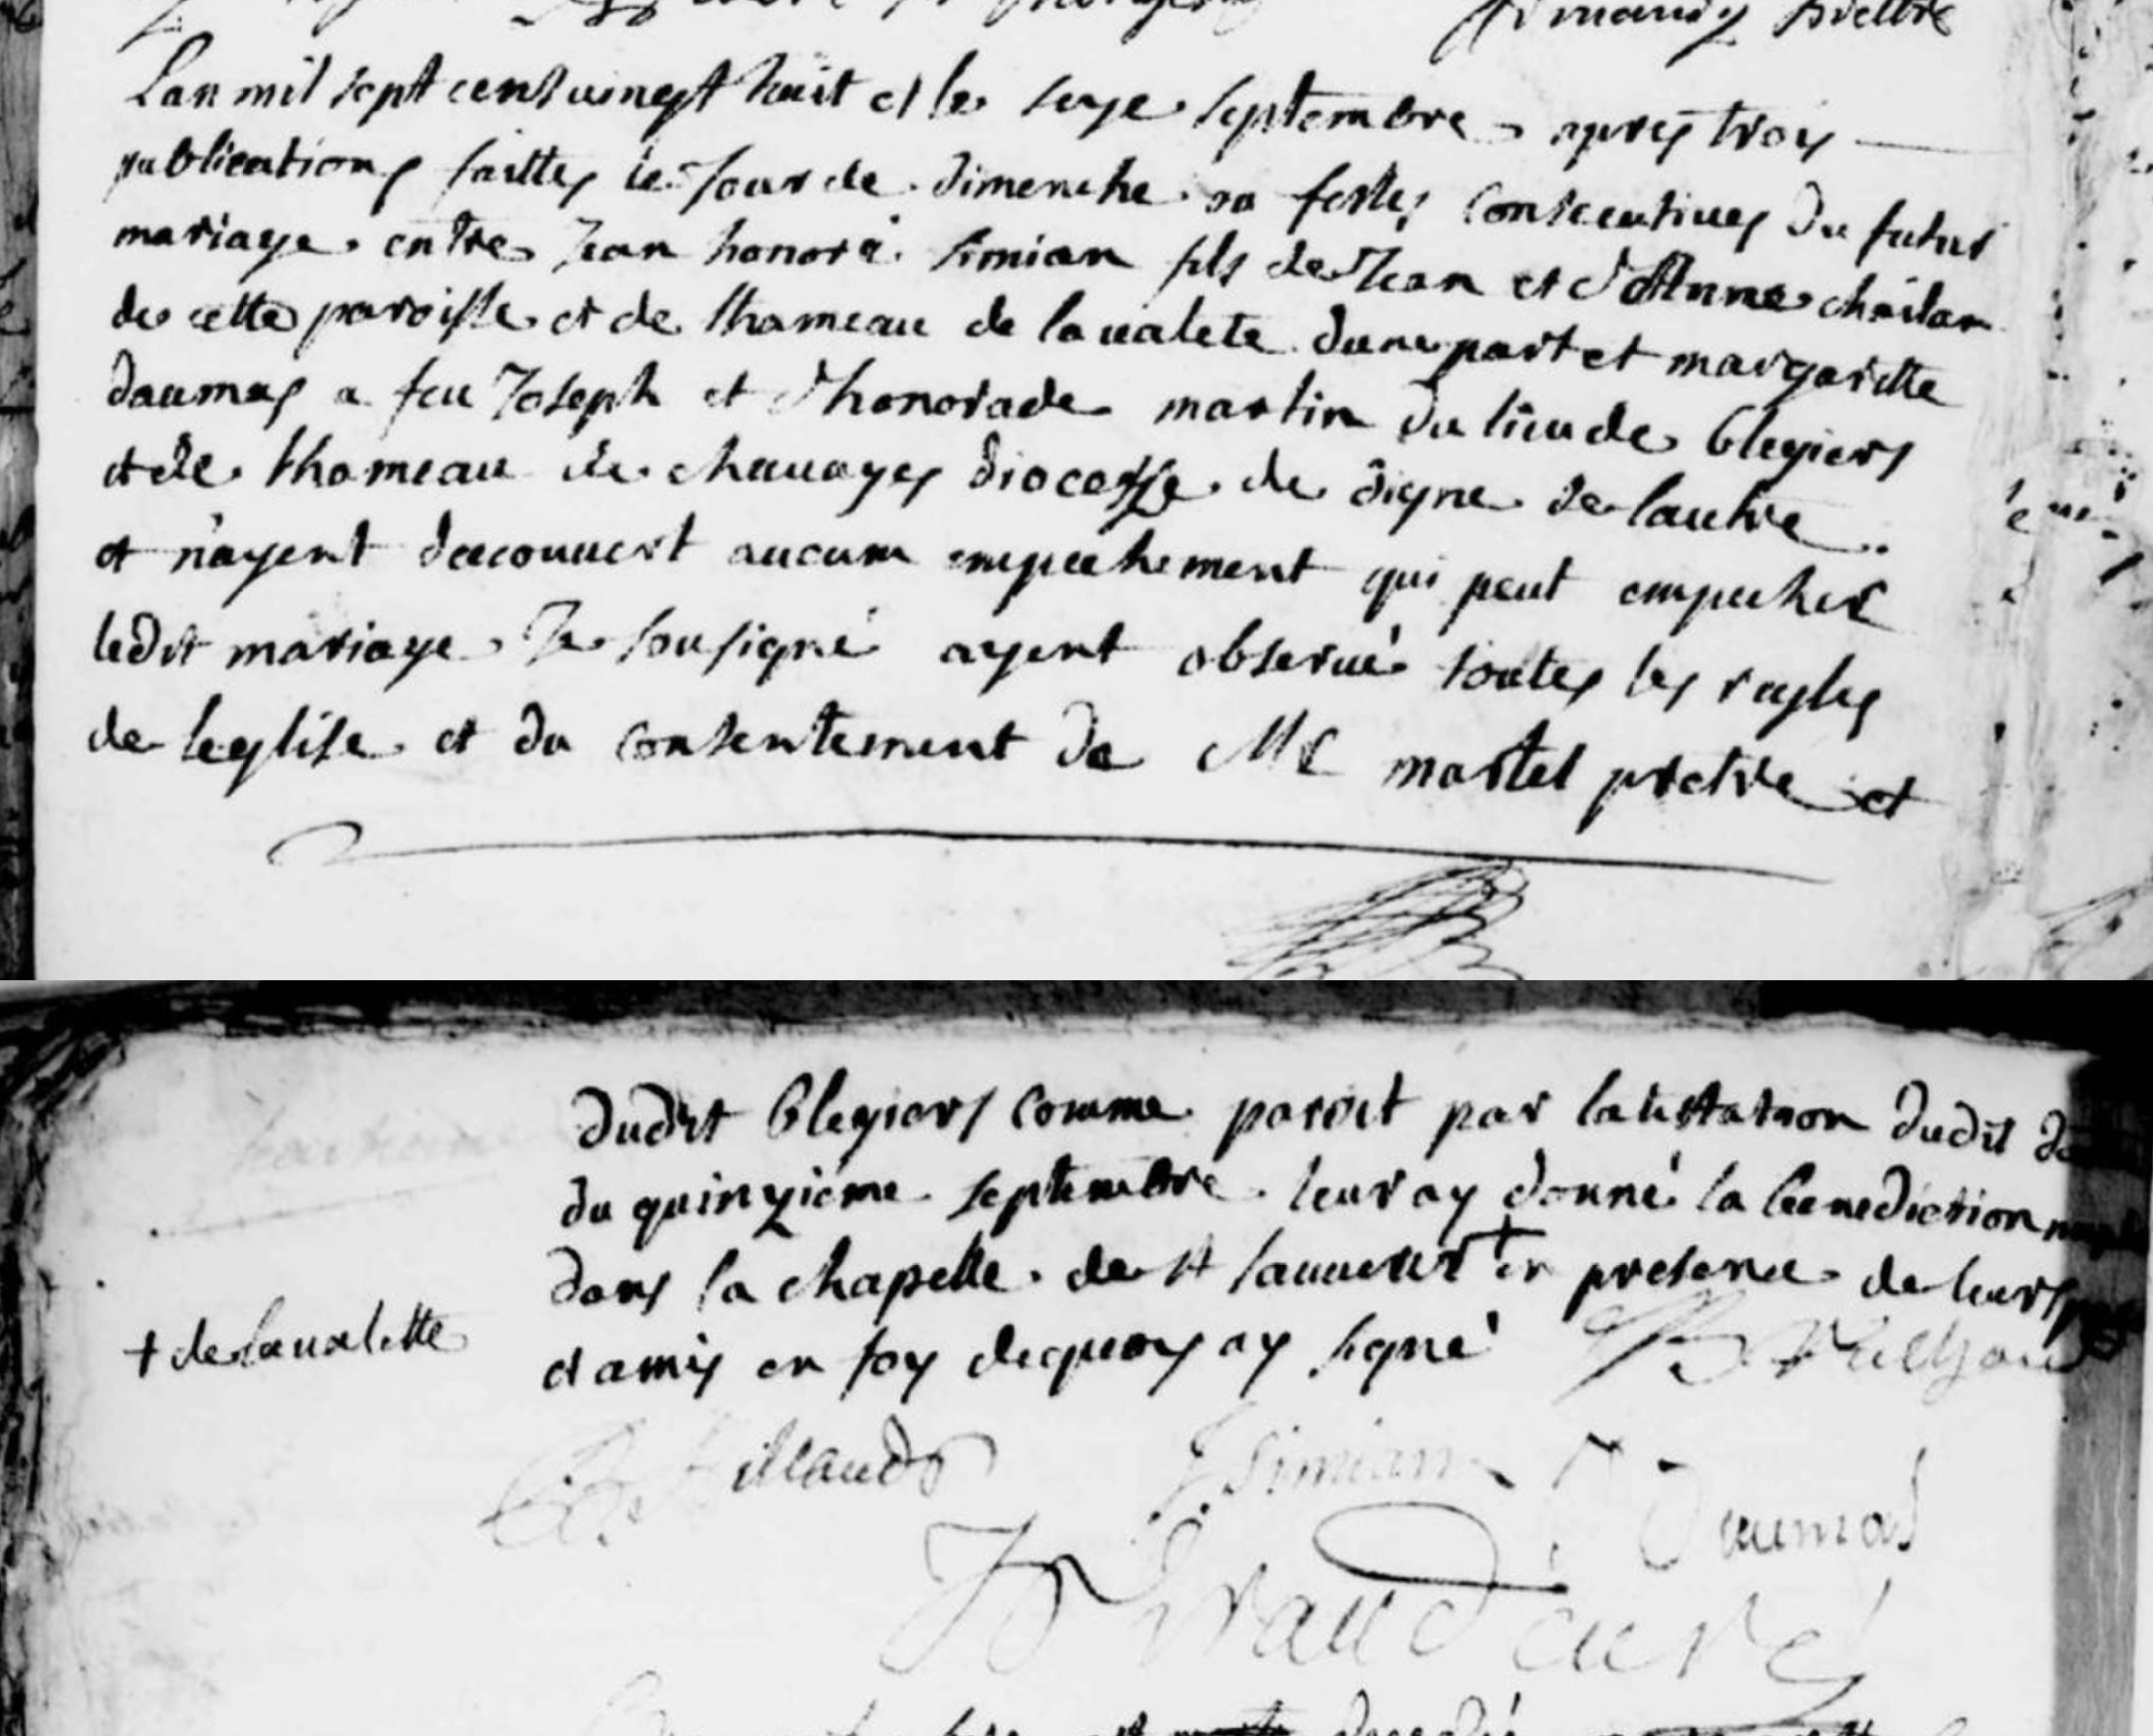 Lan mil sept cent uingt huit et le seze septembre apres trois
publications faittes le Jour de dimenche ou festes consecutives du futur
mariage entre Jean honoré simian fils de Jean et d'Anne chailan
de cette paroisse et de lhameau de laualete dune part et margaritte
daumas a feu Joseph et d'honorade martin du lieu de blegiers
et de lhameau de chauayes diocesse de digne de lautre
et n'ayent decouuert aucum empechement qui peut empecher
ledit mariage Je sousigné ayent obserué toutes les regles
de leglise et du consentement de Mr martel pretre et
dudit blegiers comme paroit par latestation dudit
du quinzieme septembre leur ay donné la benediction
dans la chapelle de st sauueur + en presence de leurs
+ de laualette
et amis en foy dequoy ay signé
J Simian
Daumas
curé